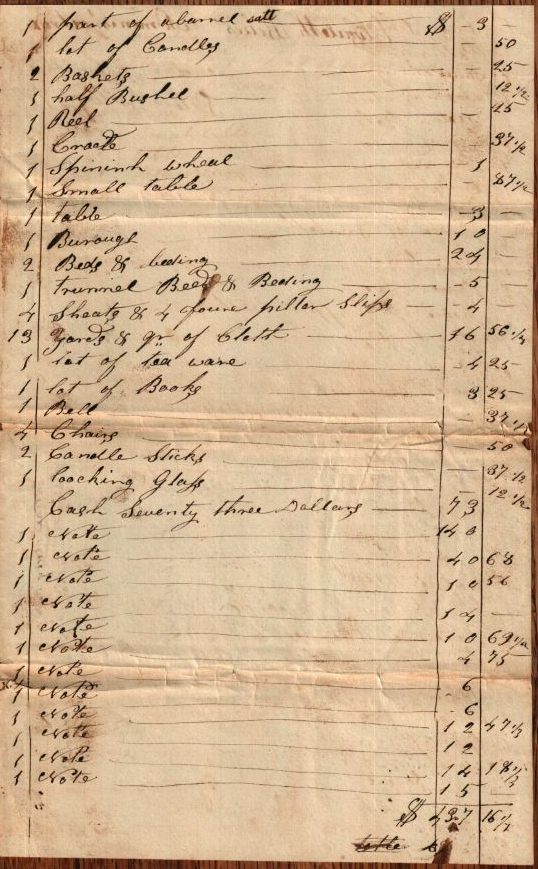 1 part of a barrel salt $ 3
1 lot of Candles 50
2 Baskets 25
1 half Bushel 12 1/2
1 Reel 25
1 Cradle 37 1/2
1 Spininh wheal 1
1 Small table 87 1/2
1 table 3
1 Burough 10
2 Beds & beding 24
1 trunnel Beed & Beding 5
4 Sheats & 4 foure pillar Slips 4
13 yards & qr. of Cloth 16 56 1/2
1 lot of tea ware 4 25
1 lot of Books 3 25
1 Bell 37 1/2
4 Chairs 50
2 Candle Sticks 37 1/2
1 loocking Glass 12 1/2
Cash Seventy three Dollars 73
1 Note 140
1 Note 40 68
1 Note 10 56
1 Note 14
1 Note 10 69 1/2
1 Note 4 75
1 Note 6
1 Note 6
1 Note 12 47 1/2
1 Note 12
1 Note 14 18 1/2
1 Note 15
$ 437 16 1/2